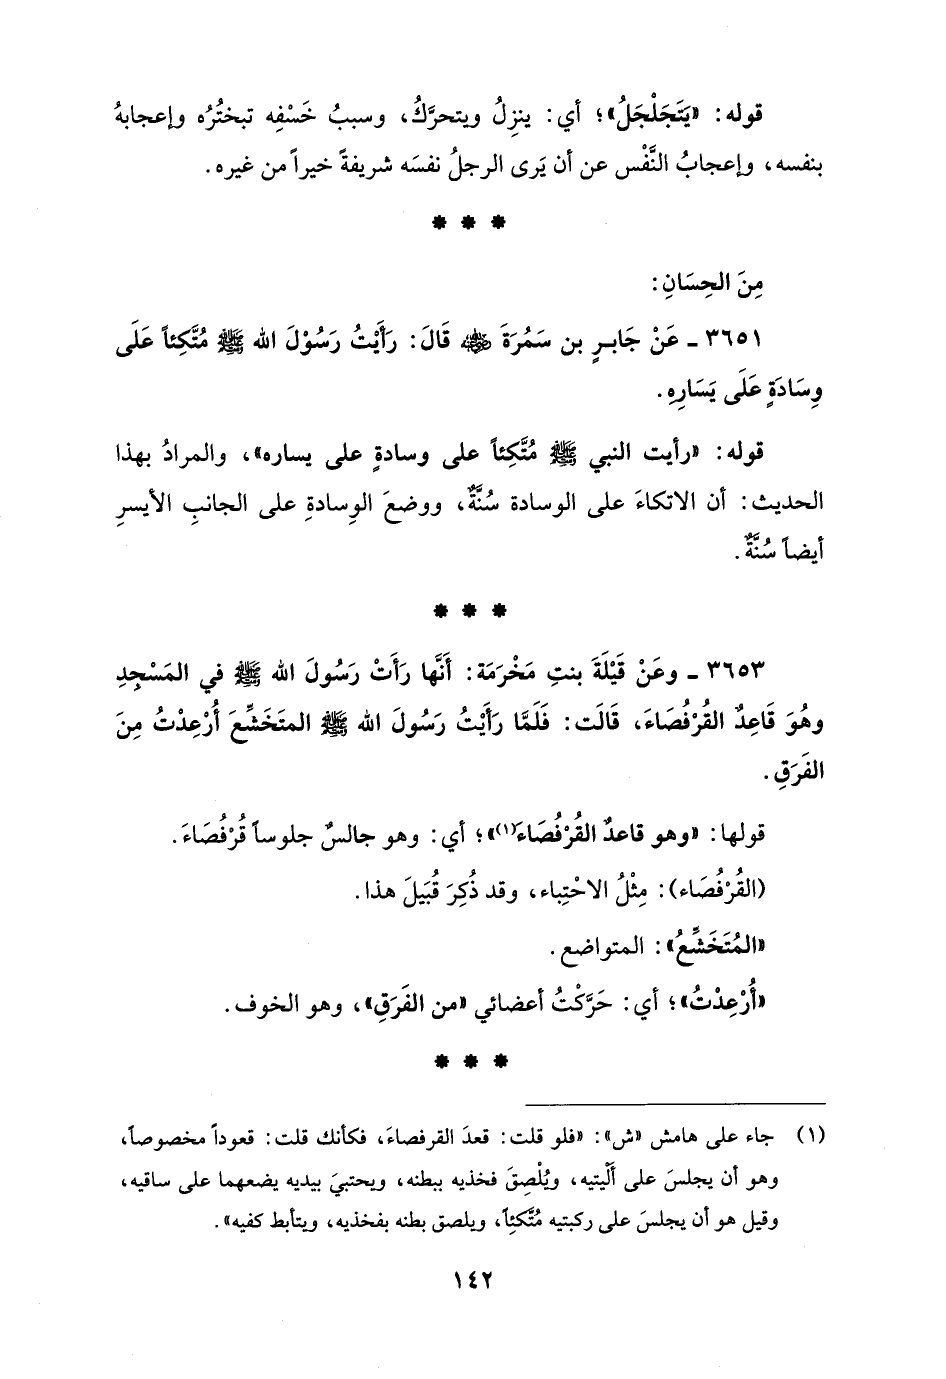 قوله: «يَتَجَلْجَلُ»؛ أي: ينزِلُ ويتحرَّكُ، وسببُ خَسْفِه تبختُرُه وإعجابهُ
بنفسه، وإعجابُ النَّفْس عن أن يَرى الرجلُ نفسَه شريفةً خيراً من غيره.
* * *
مِنَ الحِسَانِ:
٣٦٥١ ـ عَنْ جَابرِ بن سَمُرَةَ ﵁ قَالَ: رَأَيْتُ رَسُوْلَ الله ﷺ مُتَّكِئاً عَلَى
وِسَادَةٍ عَلَى يَسَارِهِ.
قوله: «رأيت النبي ﷺ مُتَّكِئاً على وسادةٍ على يساره»، والمرادُ بهذا
الحديث: أن الاتكاءَ على الوسادة سُنَّةٌ، ووضعَ الوِسادةِ على الجانبِ الأيسرِ
أيضاً سُنَّةٌ.
* * *
٣٦٥٣ ـ وعَنْ قَيْلَةَ بنتِ مَخْرَمَة: أَنَّها رَأَتْ رَسُولَ الله ﷺ في المَسْجِدِ
وهُوَ قَاعِدٌ القُرْفُصَاءَ، قَالَت: فَلَمَّا رَأَيْتُ رَسُولَ الله ﷺ المتَخَشِّعَ أُرْعِدْتُ مِنَ
الفَرَقِ.
قولها: «وهو قاعدٌ القُرْفُصَاءَ(١)»؛ أي: وهو جالسٌ جلوساً قُرْفُصَاءَ.
(القُرْفُصَاء): مِثْلُ الاحْتِباء، وقد ذُكِرَ قُبَيلَ هذا.
«المُتَخَشِّعُ»: المتواضع.
«أُرْعِدْتُ»؛ أي: حَرَّكْتُ أعضائي «من الفَرَقِ»، وهو الخوف.
* * *
(١) جاء على هامش «ش»: «فلو قلت: قعدَ القرفصاءَ، فكأنك قلت: قعوداً مخصوصاً،
وهو أن يجلسَ على أَلْيتيه، ويُلْصِقَ فخذيه ببطنه، ويحتبيَ بيديه يضعهما على ساقيه،
وقيل هو أن يجلسَ على ركبتيه مُتَّكِئاً، ويلصق بطنه بفخذيه، ويتأبط كفيه».
١٤٢